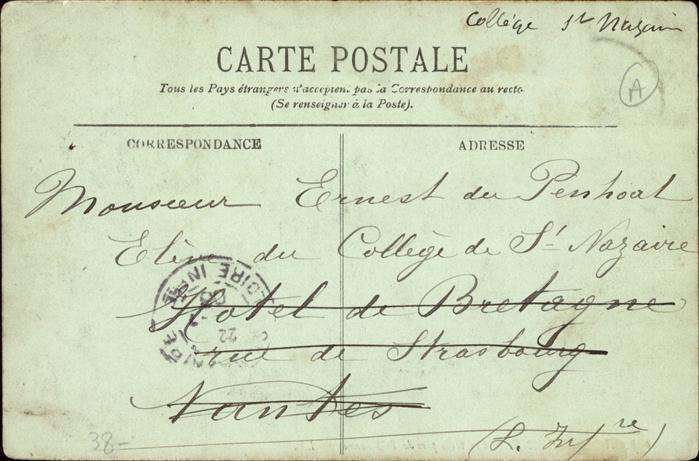 Collège St Nazaire
CARTE POSTALE
A
Tous les Pays étrangers n'acceptent pas la Correspondance au recto
(Se renseigner à la Poste).
CORRESPONDANCE
ADRESSE
Monsieur Ernest du Penhoat
Elève du Collège de St Nazaire
Hotel de Bretagne
rue de Strasbourg
Nantes
(L. Infre)
LOIRE INFRE
22
38-